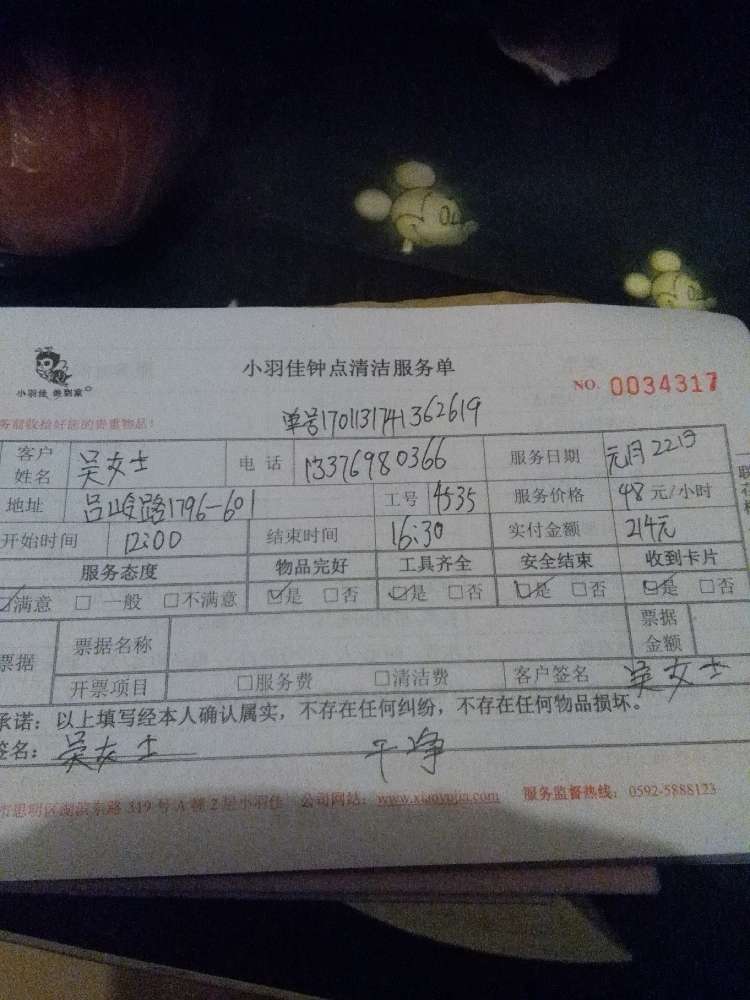 小羽佳钟点清洁服务单
小羽佳 您到家
NO. 0034317
务前收拾好您的贵重物品!
单号170113741362619
客户姓名 吴女士 电话 13376980366 服务日期 元月22日
地址 吕岭路1796-601 工号 4535 服务价格 48 元/小时
开始时间 12:00 结束时间 16:30 实付金额 214元
服务态度 物品完好 工具齐全 安全结束 收到卡片
☑满意 □一般 □不满意 ☑是 □否 ☑是 □否 ☑是 □否 ☑是 □否
票据 票据名称 票据金额
开票项目 □服务费 □清洁费 客户签名 吴女士
承诺:以上填写经本人确认属实,不存在任何纠纷,不存在任何物品损坏。
签名: 吴女士 干净
市思明区湖滨东路 319 号 A 幢 2 层小羽佳 公司网站: www.xiaoyujia.com 服务监督热线: 0592-5888123